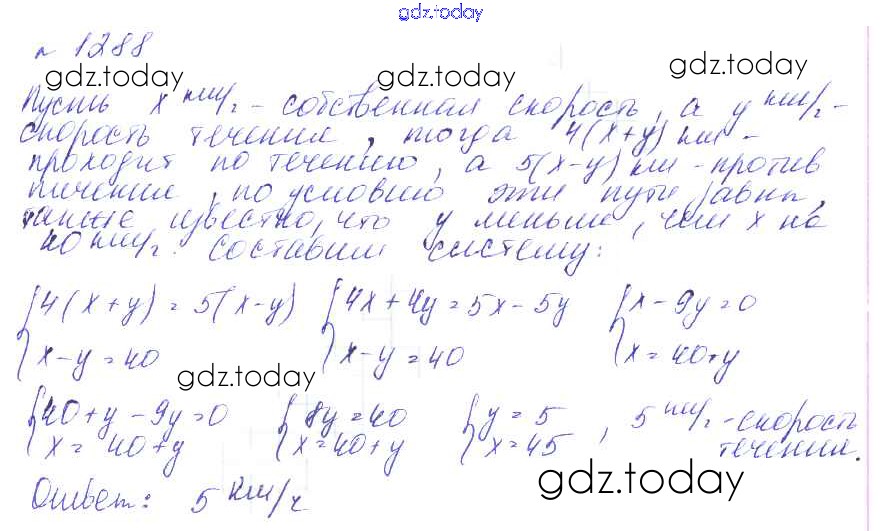 gdz.today
n 1288
gdz.today gdz.today gdz.today
Пусть x км/ч - собственная скорость, а y км/ч -
скорость течения, тогда 4(x+y) км -
проходит по течению, а 5(x-y) км - против
течение, по условию эти пути равны,
также известно, что y меньше, чем x на
40 км/ч. Составим систему:
{4(x+y)=5(x-y) {4x+4y=5x-5y {x-9y=0
{x-y=40 {x-y=40 {x=40+y
gdz.today
{40+y-9y=0 {8y=40 {y=5 , 5 км/ч - скорость
{x=40+y {x=40+y {x=45 течения.
gdz.today
Ответ: 5 км/ч